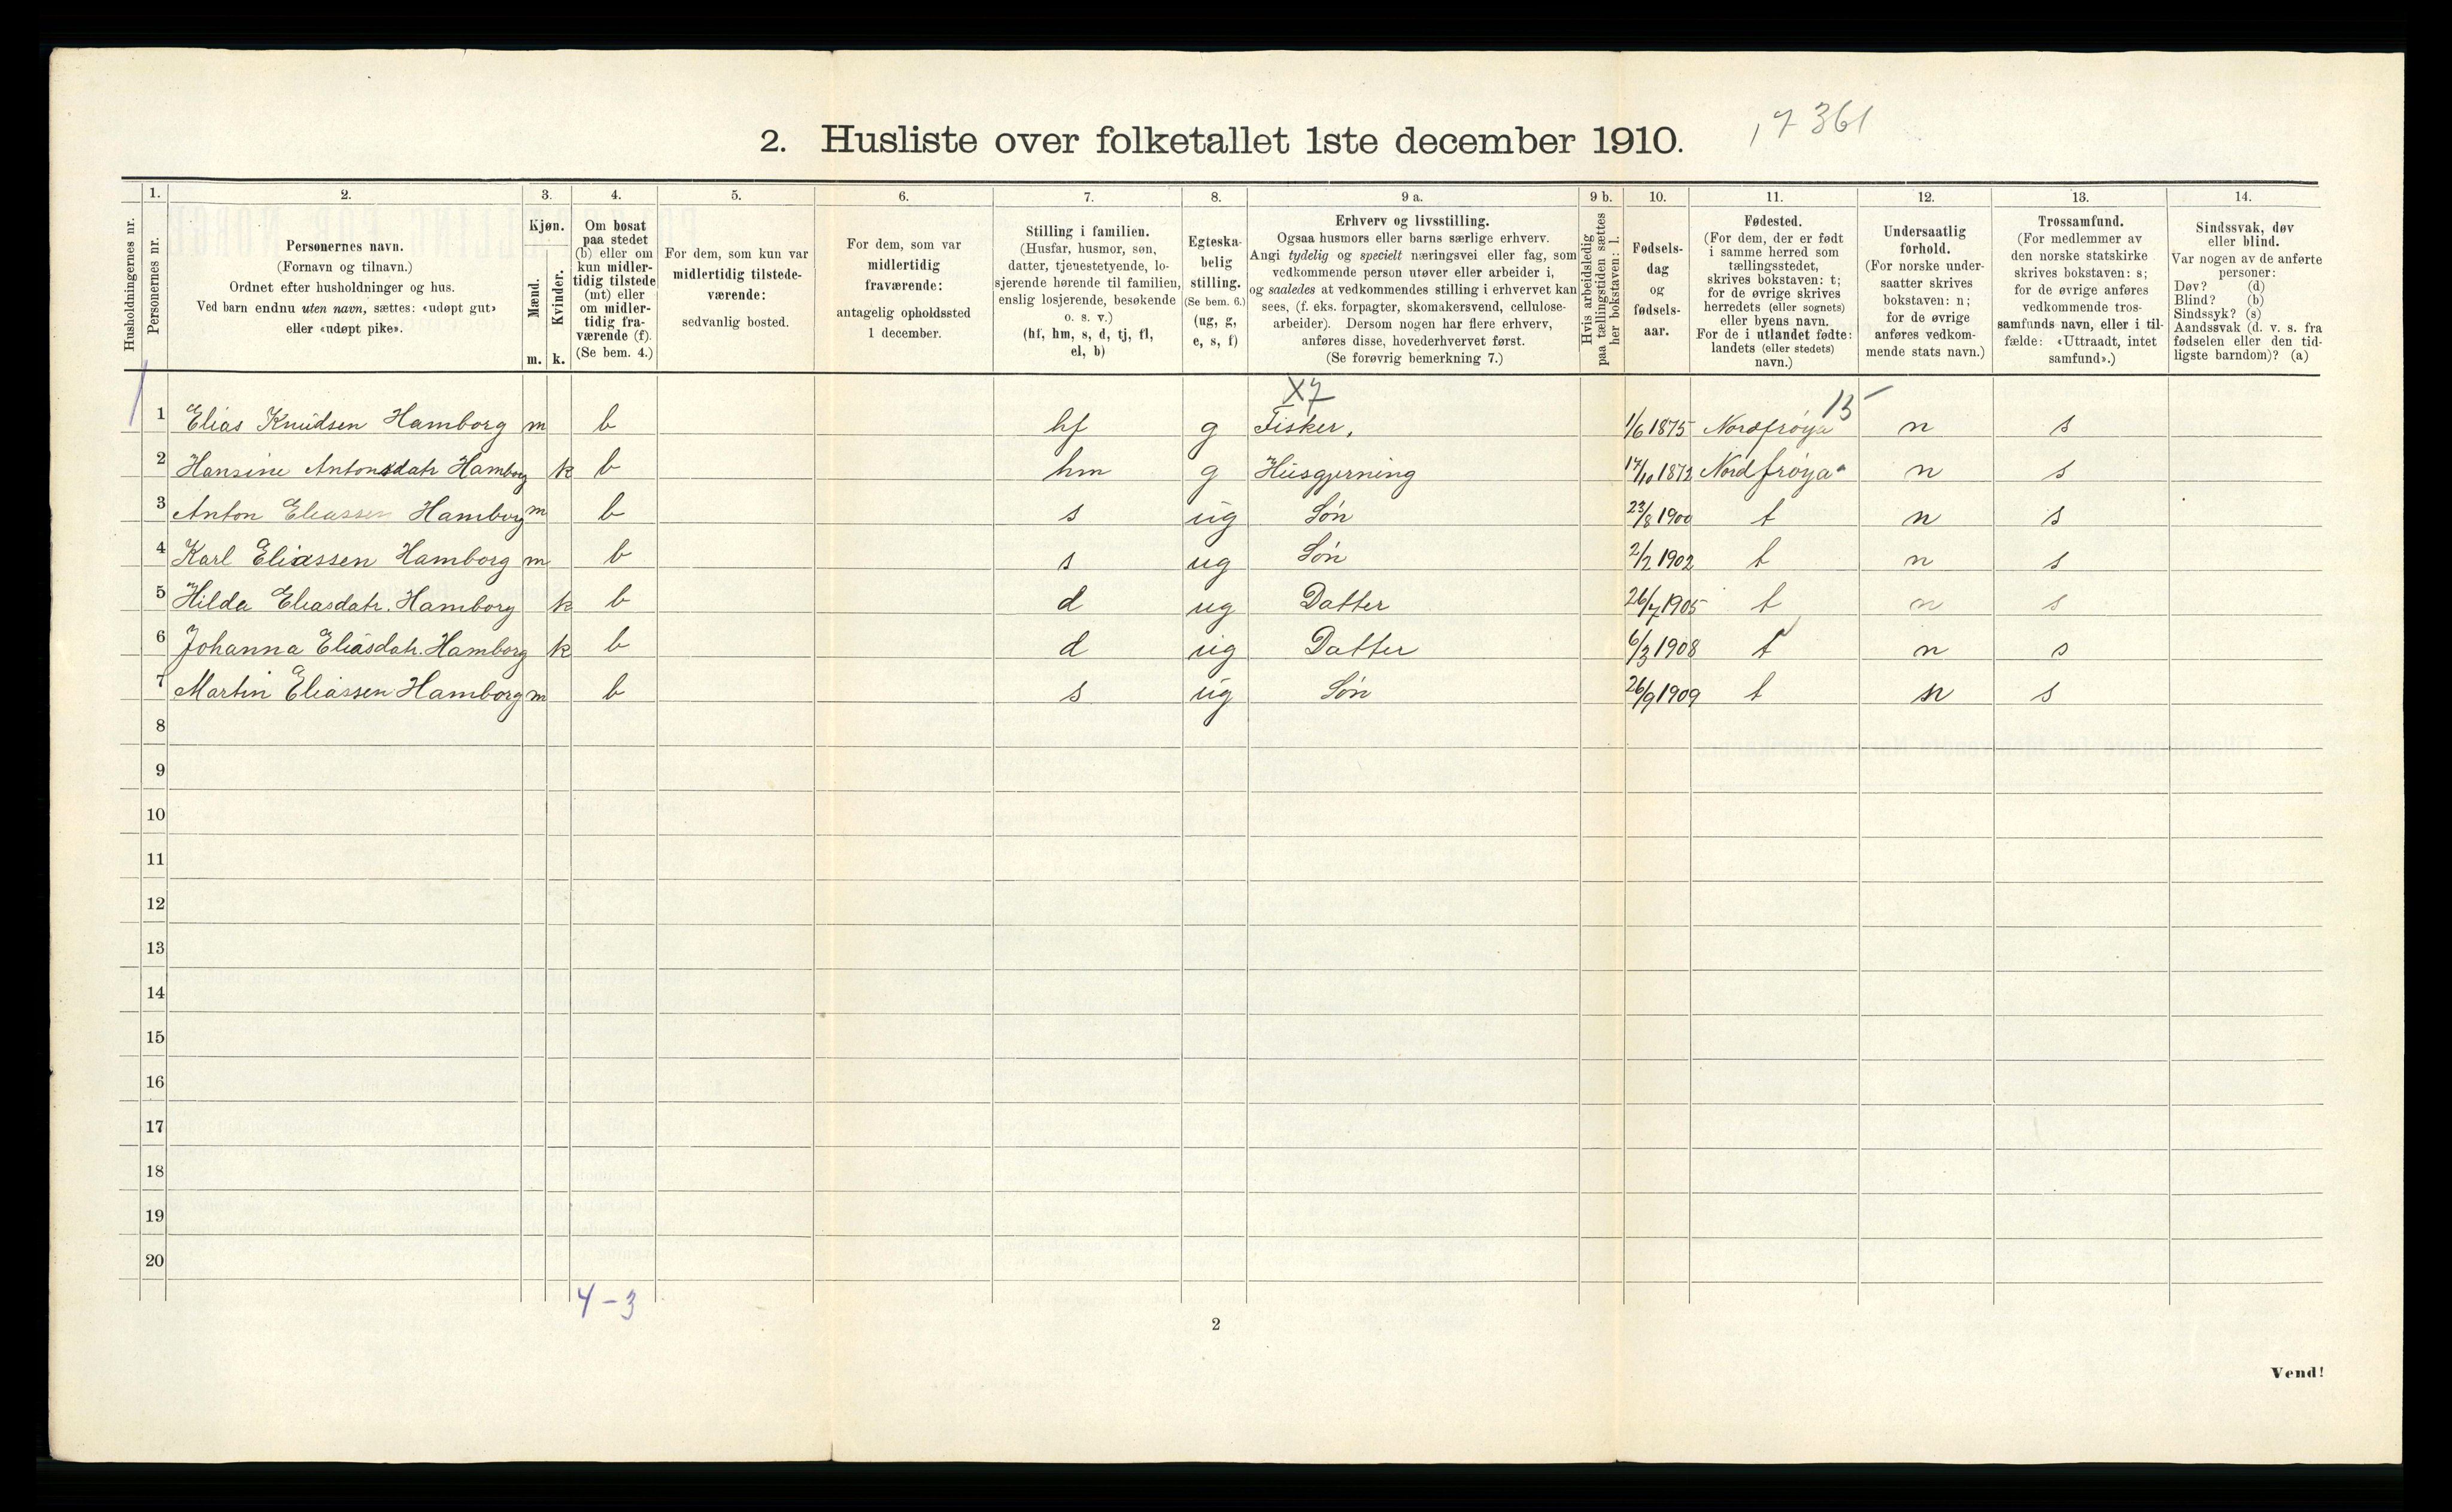 2. Husliste over folketallet 1ste december 1910.
17361
Husholdningernes nr.
1.
Personernes nr.
2.
Personernes navn.
(Fornavn og tilnavn.)
Ordnet efter husholdninger og hus.
Ved barn endnu uten navn, sættes: «udøpt gut»
eller «udøpt pike».
3.
Kjøn.
Mænd.
Kvinder.
m. k.
4.
Om bosat
paa stedet
(b) eller om
kun midler-
tidig tilstede
(mt) eller
om midler-
tidig fra-
værende (f).
(Se bem. 4.)
5.
For dem, som kun var
midlertidig tilstede-
værende:
sedvanlig bosted.
6.
For dem, som var
midlertidig
fraværende:
antagelig opholdssted
1 december.
7.
Stilling i familien.
(Husfar, husmor, søn,
datter, tjenestetyende, lo-
sjerende hørende til familien,
enslig losjerende, besøkende
o. s. v.)
(hf, hm, s, d, tj, fl,
el, b)
8.
Egteska-
belig
stilling.
(Se bem. 6.)
(ug, g,
e, s, f)
9 a.
Erhverv og livsstilling.
Ogsaa husmors eller barns særlige erhverv.
Angi tydelig og specielt næringsvei eller fag, som
vedkommende person utøver eller arbeider i,
og saaledes at vedkommendes stilling i erhvervet kan
sees, (f. eks. forpagter, skomakersvend, cellulose-
arbeider). Dersom nogen har flere erhverv,
anføres disse, hovederhvervet først.
(Se forøvrig bemerkning 7.)
9 b.
Hvis arbeidsledig
paa tællingstiden sættes
her bokstaven: l.
10.
Fødsels-
dag
og
fødsels-
aar.
11.
Fødested.
(For dem, der er født
i samme herred som
tællingsstedet,
skrives bokstaven: t;
for de øvrige skrives
herredets (eller sognets)
eller byens navn.
For de i utlandet fødte:
landets (eller stedets)
navn.)
12.
Undersaatlig
forhold.
(For norske under-
saatter skrives
bokstaven: n;
for de øvrige
anføres vedkom-
mende stats navn.)
13.
Trossamfund.
(For medlemmer av
den norske statskirke
skrives bokstaven: s;
for de øvrige anføres
vedkommende tros-
samfunds navn, eller i til-
fælde: «Uttraadt, intet
samfund».)
14.
Sindssvak, døv
eller blind.
Var nogen av de anførte
personer:
Døv? (d)
Blind? (b)
Sindssyk? (s)
Aandssvak (d. v. s. fra
fødselen eller den tid-
ligste barndom)? (a)
X7
15
1 Elias Knudsen Hamborg m b hf g Fisker, 1/6 1875 Nordfrøya n s
2 Hansine Antonsdatr Hamborg k b hm g Husgjerning 17/10 1872 Nordfrøya n s
3 Anton Eliassen Hamborg m b s ug Søn 23/8 1900 t n s
4 Karl Eliassen Hamborg m b s ug Søn 2/2 1902 t n s
5 Hilda Eliasdatr. Hamborg k b d ug Datter 26/7 1905 t n s
6 Johanna Eliasdatr. Hamborg k b d ug Datter 6/3 1908 t n s
7 Martin Eliassen Hamborg m b s ug Søn 26/9 1909 t n s
8
9
10
11
12
13
14
15
16
17
18
19
20
4 - 3
2
Vend!